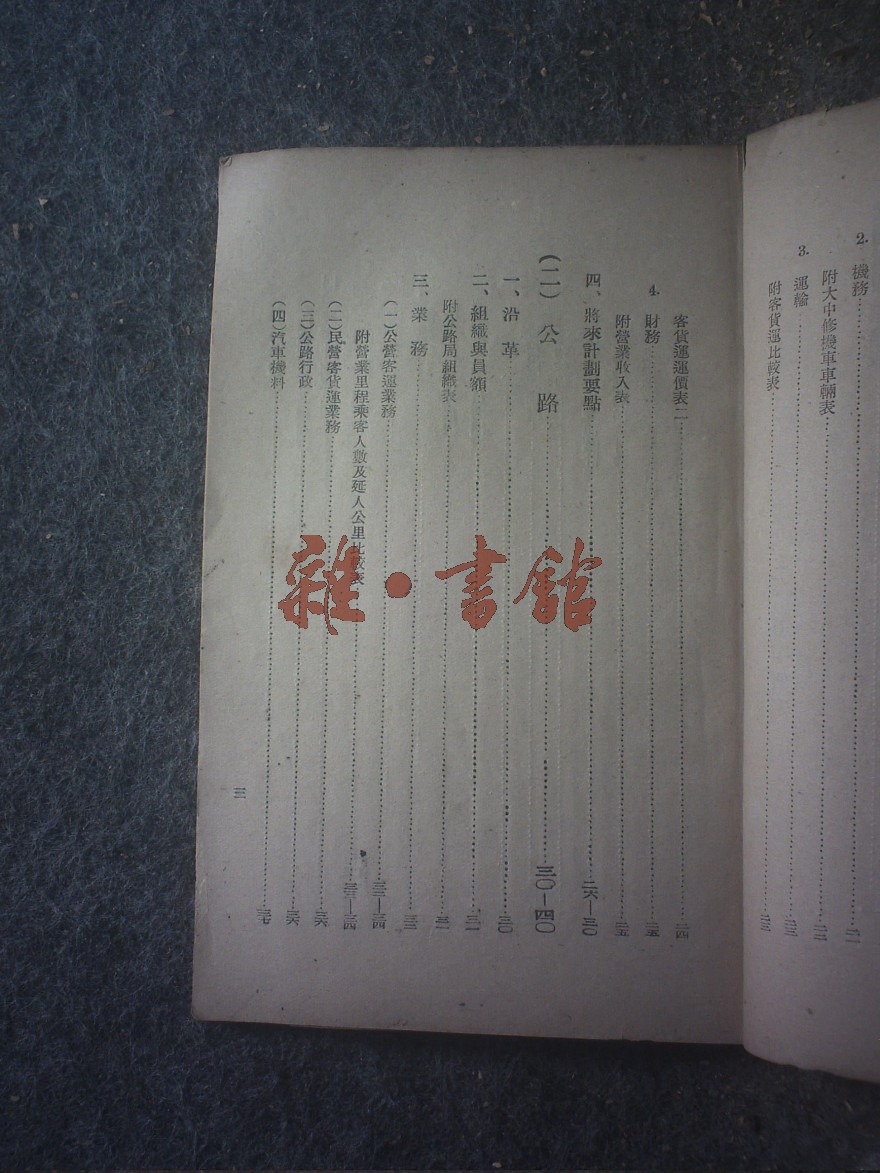 2. 機務……二一
附大中修機車車輛表……二二
3. 運輸……二三
附客貨運比較表……二三
客貨運運價表二……二四
4. 財務……二五
附營業收入表……二五
四、將來計劃要點……二六—三〇
(二)公路……三〇—四〇
一、沿革……三〇
二、組織與員額……三一
附公路局組織表……三二
三、業務……三三
(一)公營客運業務……三三—三四
附營業里程乘客人數及延人公里比較表……三三—三四
(二)民營客貨運業務……三六
(三)公路行政……三六
(四)汽車機料……三七
三
雜·書館